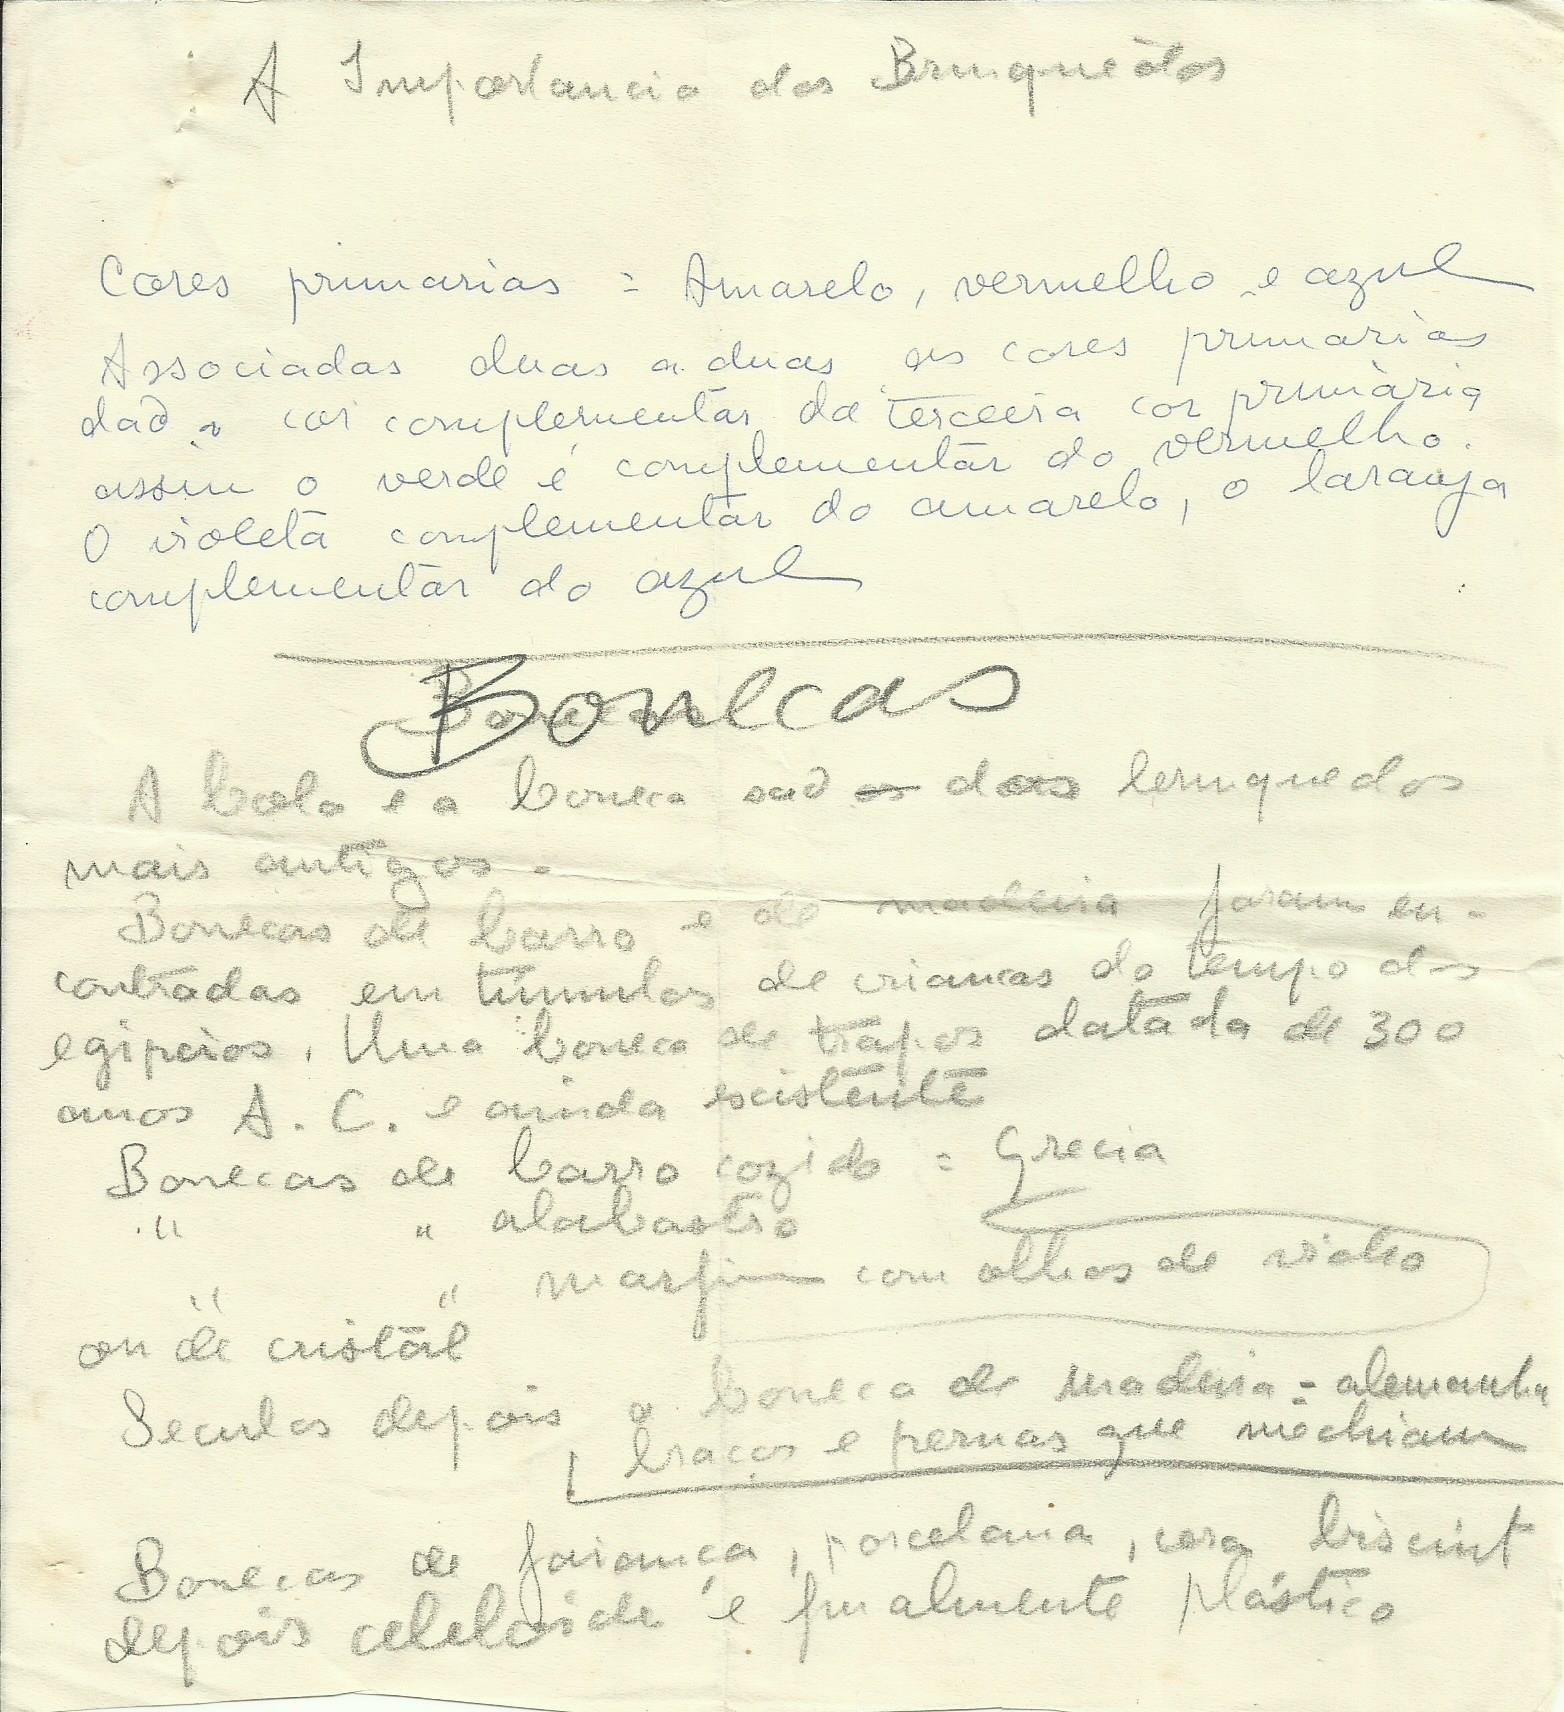 A Importancia dos Brinquêdos
Cores primarias = Amarelo, vermelho e azul
Associadas duas a duas as cores primarias
daõ a cor complementar da terceira cor primària
assim o verde é complementar do vermelho.
O violeta complementar do amarelo, o laranja
complementar do azul
Bonecas
A bola e a boneca saõ os dois brinquedos
mais antigos.
Bonecas de barro e de madeira foram en-
contradas em tumulos de criancas do tempo dos
egipcios. Uma boneca de trapos datada de 300
anos A. C. e ainda escistente
Bonecas de barro cozido = Grecia
" " alabastro
" " marfim com olhos de vidro
ou de cristal
Seculos depois a boneca de madeira = alemanha
braços e pernas que mechiam
Bonecas de faiança, porcelana, cera biscuit
depois celeloide e finalmente plástico